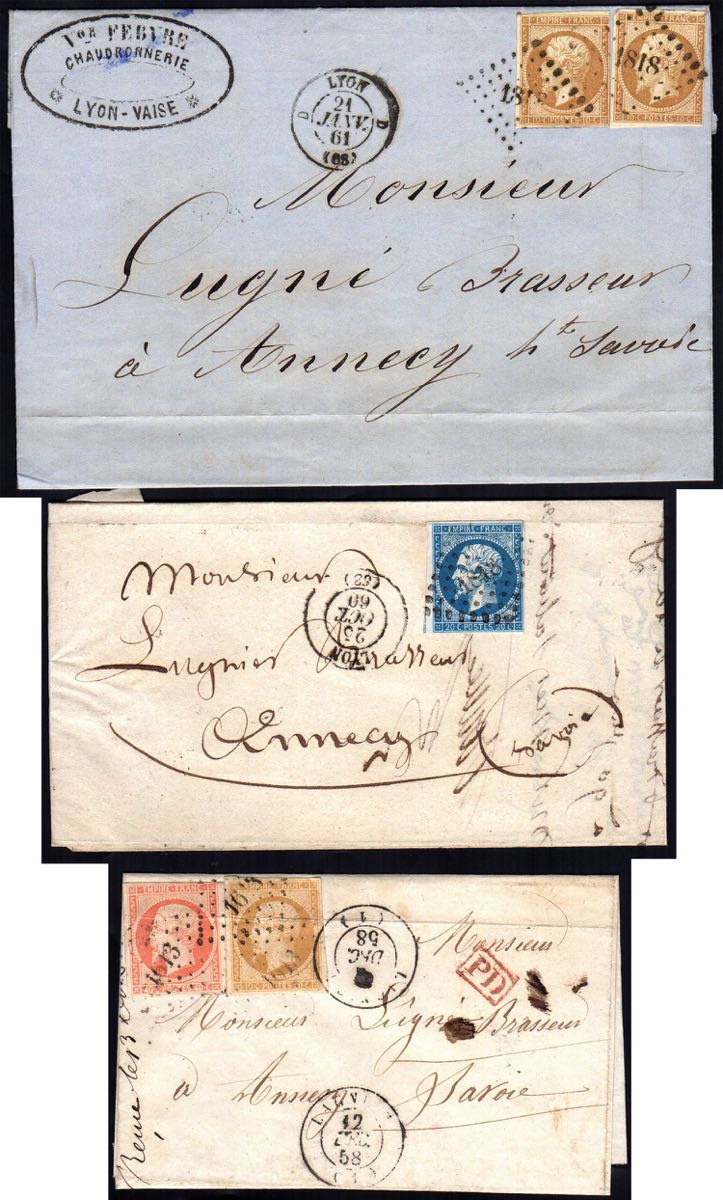 Vor FEBVRE
CHAUDRONNERIE
LYON-VAISE
LYON
D 21 D
JANV.
61
(68)
EMPIRE FRANC
EMPIRE FRANC
1818
10·C·POSTES·10·C
10·C·POSTES·10·C
Monsieur
Lugné Brasseur
à Annecy hte Savoie
EMPIRE FRANC
1818
20·C·POSTES·20·C
LYON
25
OCT.
60
(62)
Monsieur
Lugnier Brasseur
Annecy
Savoie
EMPIRE FRANC
EMPIRE FRANC
1613
1613
DEC.
58
(1)
Monsieur
PD
Monsieur Lugné Brasseur
à Annecy Savoie
12
DEC.
58
(1)